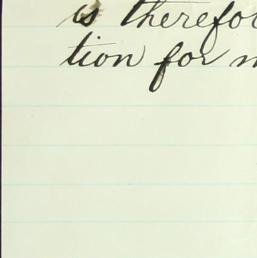 is therefor
tion for